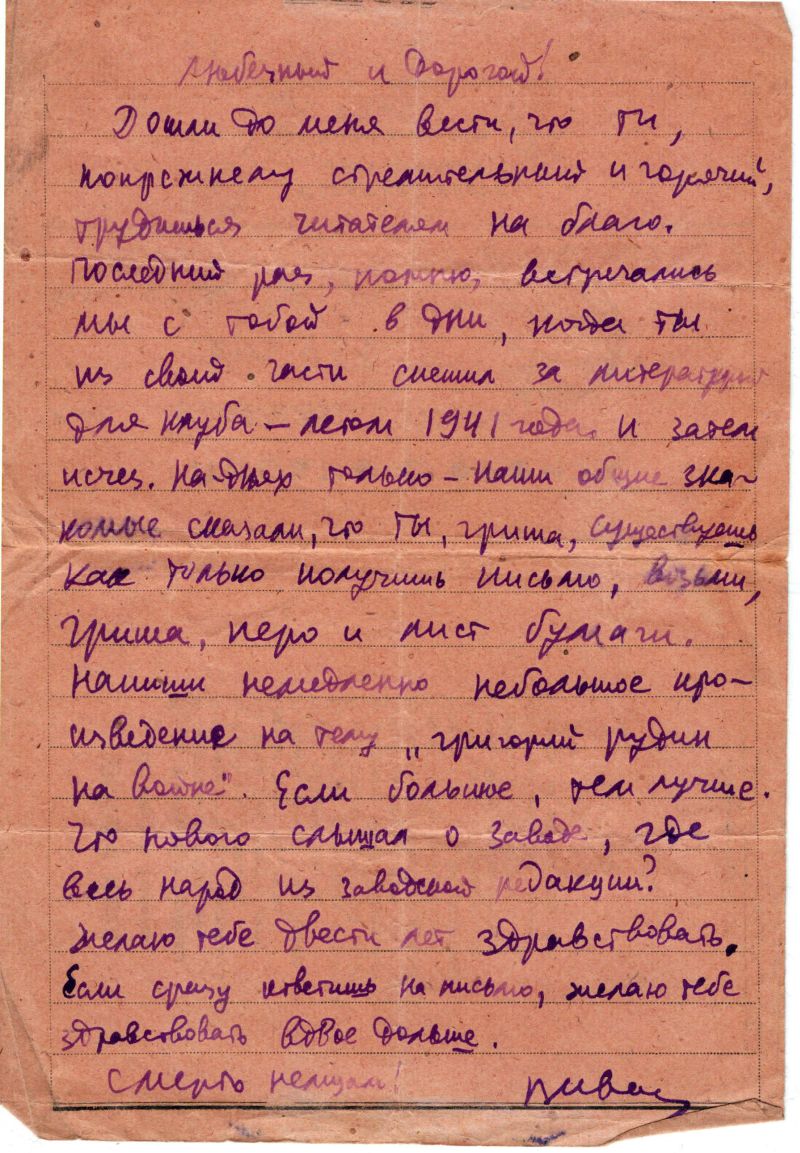 Любезный и Дорогой!
Дошли до меня вести, что ты,
попрежнему стремительный и горячий,
трудишься читателям на благо.
Последний раз, помню, встречались
мы с тобой в дни, когда ты
из своей части спешил за литературой
для клуба – летом 1941 года. И затем
исчез. На-днях только – наши общие зна-
комые сказали, что ты, Гриша, существуешь
Как только получишь письмо, возьми,
Гриша, перо и лист бумаги.
Напиши немедленно небольшое про-
изведение на тему „Григорий Рудин
на войне". Если большое, тем лучше.
Что нового слышал о заводе, где
весь народ из заводской редакции?
Желаю тебе двести лет здравствовать.
Если сразу ответишь на письмо, желаю тебе
здравствовать вдвое дольше.
Смерть немцам!